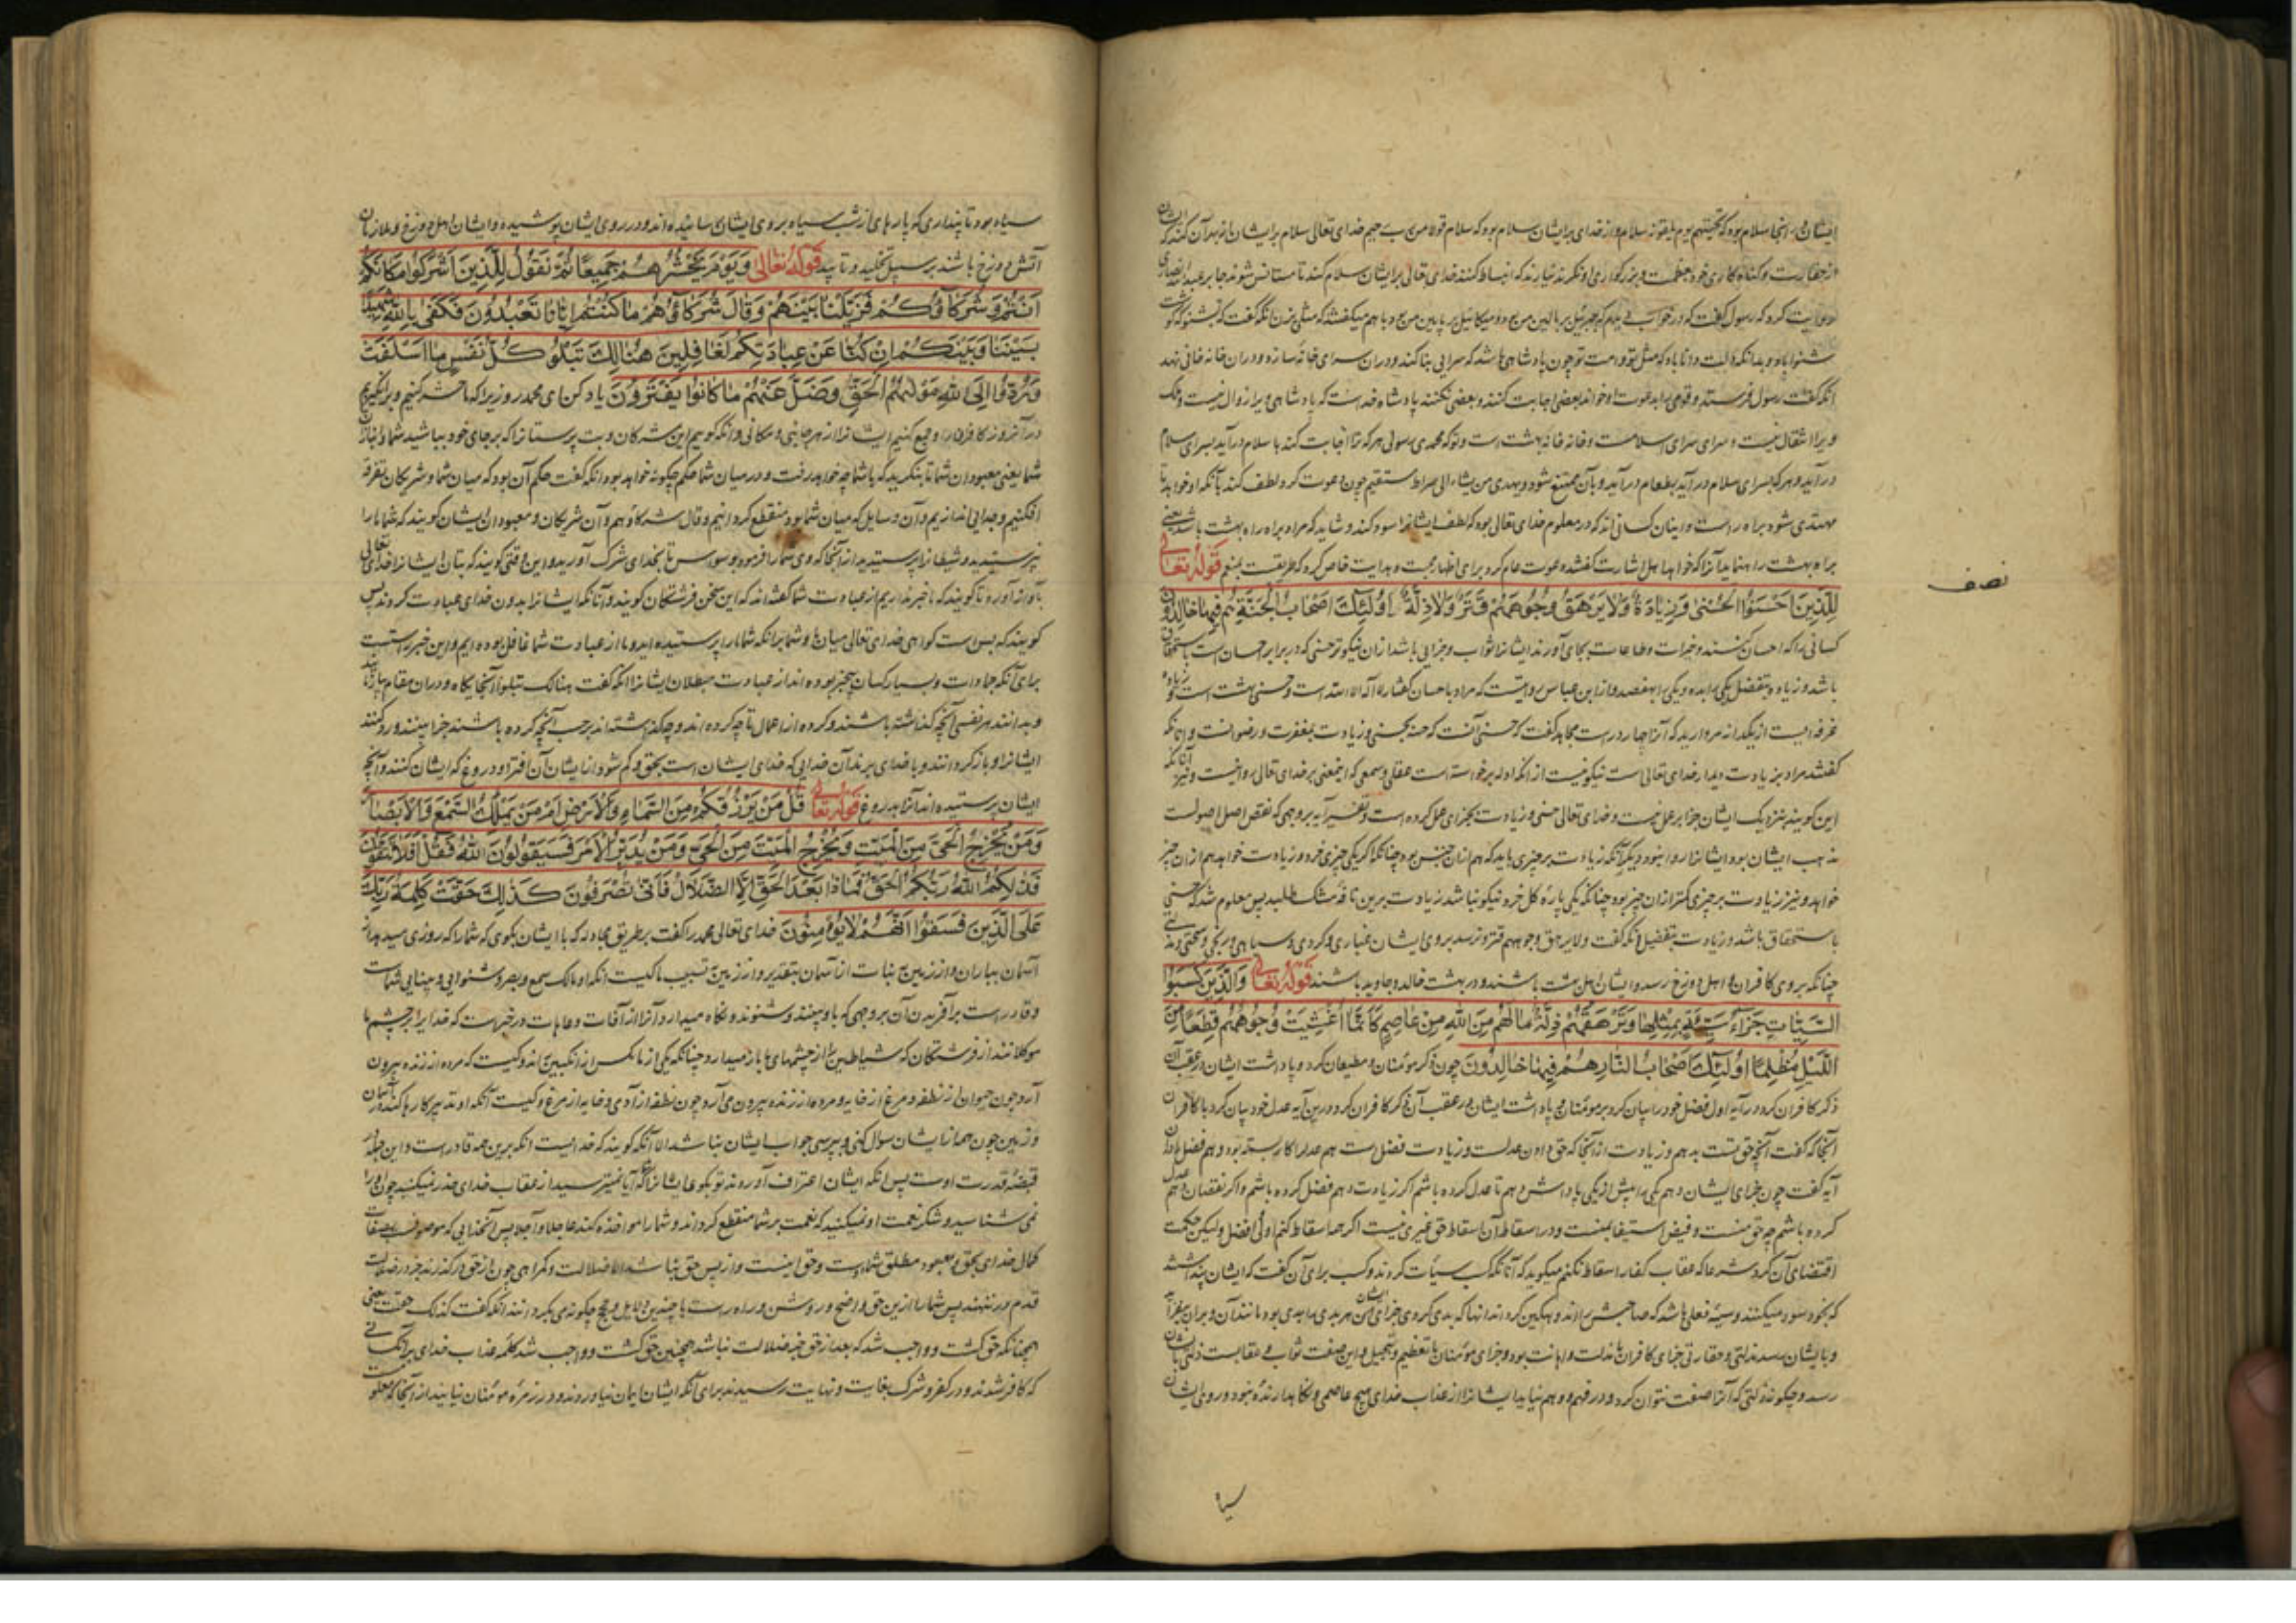 ایشان در آنجا سلام بود که تحیتهم یوم یلقونه سلام و از خدای برایشان سلام بود که سلام قولا من رب رحیم خدای تعالی سلام برایشان
از حقارت و کناه کاری خود و عظمت و بزرکواری او نکرند نیارند که انبساط کنند خدای تعالی برایشان سلام کند تا مستانس شوند جابر عبد الله انصاری
روایت کرد که رسول کفت که در خواب دیدم که جبرئیل بر بالین من بود و میکائیل بر پایین من و با هم میکفتند که مثلی بزن آنکه کفت که بشنو که کوشت
شنوا باد و بدانکه دلت دانا باد که مثل تو و امت تو چون پادشاهی باشد که سرایی بنا کند و در آن سرای خانه سازد و در آن خانه خوانی نهد
آنکه کفت رسول فرستد و قومی را بدعوت او خواند بعضی اجابت کنند و بعضی نکنند پادشاه خداست که پادشاهی ویرا زوال نیست و ملک
ویرا انتقال نیست و سرای سرای اسلامست و خانه خانه بهشت است و تو که محمدی رسولی هر که ترا اجابت کند باسلام در آید بسرای اسلام
در آید و هر که بسرای اسلام در آید بطعام در آید و بآن متمتع شود و یهدی من یشاء الی صراط مستقیم چون دعوت کرد و لطف کند بآنکه او خواهد تا
مهتدی شود براه راست و اینان کسانی اند که در معلوم خدای تعالی بود که لطف ایشانرا سود کند و شاید که مراد براه راه بهشت باشد یعنی
براه بهشت راهنماید آنرا که خواهد اهل اشارت کفتند دعوت عام کرد برای اظهار حجت و هدایت خاص کرد که طریقت بنعم قوله تعالی
لِلَّذِينَ اَحْسَنُوا الْحُسْنٰى وَزِيادَةٌ وَلايَرْهَقُ وُجُوهَهُمْ قَتَرٌ وَلاذِلَّةٌ اُولٰئِكَ اَصْحابُ الْجَنَّةِ هُمْ فِيها خالِدُونَ
کسانی را که احسان کنند و خیرات و طاعات بجای آورند ایشانرا ثواب و جزایی باشد از آن نیکوتر حسنی که در برابر احسان است باستحقاق
باشد و زیاده بتفضل یکی را ده و یکی را هفصد و از ابن عباس روایتست که مراد باحسان کفتار لا اله الا الله است و حسنی بهشت است و زیاده
غرفه ایست از یکدانه مروارید که آنرا چهار درست مجاهد کفت که حسنی آنست که حسنه بحسنی و زیادت بمغفرت و رضوانست و آنانکه
کفتند مراد بزیادت دیدار خدای تعالی است نیکو نیست از آنکه ادله برخواسته است عقلی و سمعی که این معنی بر خدای تعالی روا نیست و نیز آنانکه
این کویند بنزدیک ایشان جزا بر عمل نیست و خدای تعالی حسنی و زیادت بجزای عمل کرده است و تفسیر آیه بر وجهی که نقض اصل اصولست
مذهب ایشان بود ایشانرا روا نبود و دیکر آنکه زیادت بر چیزی باید که هم از آن جنس بود چنانکه اکر یکی چیزی خرد و زیادت خواهد هم از آن چیز
خواهد و نیز زیادت بر چیزی کمتر از آن چیز بود چنانکه یکی پاره کل خرد نیکو نباشد زیادت برین نافه مشک طلبد پس معلوم شد که حسنی
باستحقاق باشد و زیادت بتفضیل آنکه کفت ولایرهق وجوههم قتر و نرسد بروی ایشان غباری و کردی و سیاهی و رنجی و سختی و مذلتی
چنانکه بروی کافران و اهل دوزخ رسد و ایشان اهل بهشت باشند و در بهشت خالد و جاوید باشند قوله تعالی وَالَّذِينَ كَسَبُوا
السَّيِّئاتِ جَزاءُ سَيِّئَةٍ بِمِثْلِها وَتَرْهَقُهُمْ ذِلَّةٌ مالَهُمْ مِنَ اللهِ مِنْ عاصِمٍ كَاَنَّما اُغْشِيَتْ وُجُوهُهُمْ قِطَعًا مِنَ
اللَّيْلِ مُظْلِمًا اُولٰئِكَ اَصْحابُ النَّارِ هُمْ فِيها خالِدُونَ چون ذکر مؤمنان و مطیعان کرد و پاداشت ایشان در عقب آن
ذکر کافران کرد در آیه اول فضل خود را بیان کرد بر مؤمنان و پاداشت ایشان و در عقب آن ذکر کافران کرد درین آیه عدل خود بیان کرد با کافران
آنجا که کفت آنچه حق تست بدهم و زیادت از آنجا که حق دادن عدلست و زیادت فضل است هم عدل را کار بسته بود و هم فضل را درین
آیه کفت چون جزای ایشان دهم یکی را بیش از یکی پاداش ندهم تا عدل کرده باشم اکر زیادت دهم فضل کرده باشم و اکر نقصان دهم عدل
کرده باشم چه حق منست و قبض استیفا بمنست و در اسقاط آن اسقاط حق غیری نیست اکر چه اسقاط کنم اولی و افضل ولیکن حکمت
اقتضای آن کرد شرعا که عقاب کفار اسقاط نکنم میکوید که آنانکه کسب سیئات کردند و کسب برای آن کفت که ایشان پنداشتند
که بخود سود میکنند و سیئه فعلی باشد که صاحبش را اندوهکین کرداند آنها که بدی کردی جزای ایشان هر بدی را بدی بود مانند آن و بر آن نیفزاید
و بایشان رسد مذلتی و حقارتی جزای کافران با مذلت و اهانت بود و جزای مؤمنان با تعظیم و تبجیل و این صفت ثواب و عقابست ذلتی بایشان
رسد و چکونه ذلتی که آنرا صفت نتوان کرد و در فهم و وهم نیاید ایشانرا از عذاب خدای هیچ عاصمی و نکاهدارنده نبود و روی ایشان
سیا
نصف
سیاه بود تا پنداری که پارهای از شب سیاه بروی ایشان رسانیده اند و در روی ایشان پوشیده و ایشان اهل دوزخ و ملازمان
آتش دوزخ باشند بر سبیل تخلید و تابید قوله تعالی وَيَوْمَ نَحْشُرُهُمْ جَمِيعًا ثُمَّ نَقُولُ لِلَّذِينَ اَشْرَكُوا مَكانَكُمْ
اَنْتُمْ وَشُرَكاؤُكُمْ فَزَيَّلْنا بَيْنَهُمْ وَقالَ شُرَكاؤُهُمْ ماكُنْتُمْ اِيّانا تَعْبُدُونَ فَكَفٰى بِاللهِ شَهِيدًا
بَيْنَنا وَبَيْنَكُمْ اِنْ كُنَّا عَنْ عِبادَتِكُمْ لَغافِلِينَ هُنالِكَ تَبْلُو كُلُّ نَفْسٍ ما اَسْلَفَتْ
وَرُدُّوا اِلَى اللهِ مَوْلٰيهُمُ الْحَقِّ وَضَلَّ عَنْهُمْ ماكانُوا يَفْتَرُونَ یاد کن ای محمد روزیرا که ما حشر کنیم و برانکیزیم
در آنروز کافران را و جمع کنیم ایشانرا از هر جانبی و مکانی و آنکه کوییم این مشرکان و بت پرستانرا که بر جای خود بباشید شما و انبازان
شما یعنی معبودان شما تا بنکرید که با شما چه خواهد رفت و در میان شما حکم چکونه خواهد بود آنکه کفت حکم آن بود که میان شما و شریکان تفرقه
افکنیم و جدایی اندازیم و آن وسایل که میان شما بود منقطع کردانیم و قال شرکاؤهم و آن شریکان و معبودان ایشان کویند که شما ما را
نپرستیدید و شیطانرا پرستیدید از آنجا که وی شما را فرمود بوسوس تا بخدای شرک آوردید و این وقتی کویند که بتان ایشانرا خدای تعالی
بآواز آورد تا کویند که ما خبر نداریم از عبادت شما کفته اند که این سخن فرشتکان کویند و آنانکه ایشانرا بدون خدای عبادت کردند پس
کویند که بس است کواهی خدای تعالی میان ما و شما برانکه شما ما را پرستیده اید و ما از عبادت شما غافل بوده ایم و این خبر راستست
برای آنکه جمادات و بسیار کسان بیخبر بوده اند از عبادت مبطلان ایشانرا آنکه کفت هنالک تبلوا آنجایکاه و در آن مقام بیازماید
و بدانند هر نفسی آنچه کذاشته باشند و کرده از اعمال تا چه کرده اند و چه کذاشته اند بر حسب آنچه کرده باشند جزا بینند و رد کنند
ایشانرا و باز کردانند و با خدای برند آن خدایی که خدای ایشان است بحق و کم شود از ایشان آن افترا و دروغ که ایشان کنند و آنچه
ایشان پرستیده اند آنرا بدروغ قوله تعالی قُلْ مَنْ يَرْزُقُكُمْ مِنَ السَّماءِ وَالْاَرْضِ اَمْ مَنْ يَمْلِكُ السَّمْعَ وَالْاَبْصارَ
وَمَنْ يُخْرِجُ الْحَيَّ مِنَ الْمَيِّتِ وَيُخْرِجُ الْمَيِّتَ مِنَ الْحَيِّ وَمَنْ يُدَبِّرُ الْاَمْرَ فَسَيَقُولُونَ اللهُ فَقُلْ اَفَلاتَتَّقُونَ
فَذٰلِكُمُ اللهُ رَبُّكُمُ الْحَقُّ فَماذا بَعْدَ الْحَقِّ اِلَّا الضَّلالُ فَاَنّٰى تُصْرَفُونَ كَذٰلِكَ حَقَّتْ كَلِمَةُ رَبِّكَ
عَلَى الَّذِينَ فَسَقُوا اَنَّهُمْ لايُؤْمِنُونَ خدای تعالی محمد را کفت بر طریق مجادله که با ایشان بکوی که شما را که روزی میدهد از
آسمان بباران و از زمین به نبات از آسمان بتقدیر و از زمین به تسبیب یا کیست آنکه او مالک سمع و بصر و شنوایی و بینایی شماست
و قادر است بر آفریدن آن بر وجهی که باو بینند و شنوند و نکاه میدارد آنرا از آفات و عاهات و در خبرست که خدایرا بر چشم ما
موکلانند از فرشتکان که شیاطین را از چشمهای ما باز میدارد چنانکه یکی از ما مکس از انکبین براند و کیست که مرده از زنده بیرون
آرد چون حیوان از نطفه و مرغ از خایه و مرده از زنده بیرون می آرد چون نطفه از آدمی و خایه از مرغ و کیست آنکه او تدبیر کارها کند در آسمان
و زمین چون همه از ایشان سوال کنی و بپرسی جواب ایشان نباشد الا آنکه کویند که خدایست آنکه برین همه قادر است و این جمله در
قبضه قدرت اوست پس آنکه ایشان اعتراف آوردند تو بکوی ایشانرا که آیا نمیترسید از عقاب خدای حذر نمیکنید چون او را
نمی شناسید و شکر نعمت او نمیکنید که نعمت بر شما منقطع کرداند و شما را مواخذه کند عاجلا و آجلا پس آنخدایی که موصوف بصفات
کمال خدای بحق و معبود مطلق شماست و حق اینست و از پس حق نباشد الا ضلالت و کمراهی چون از حق در کذرند جز در ضلالت
قدم در ننهند پس شما را ازین حق واضح و روشن و راه راست با چندین دلایل و حجج چکونه می بکردانند آنکه کفت کذلک حقت یعنی
همچنانکه حق کشت و واجب شد که بعد از حق جز ضلالت نباشد همچنین حق کشت و واجب شد کلمه عذاب خدای بر آنکسانی
که کافر شدند و در کفر و شرک بغایت و نهایت رسیدند برای آنکه ایشان ایمان نیاوردند و در زمره مؤمنان نیایند از آنجا که معلومست